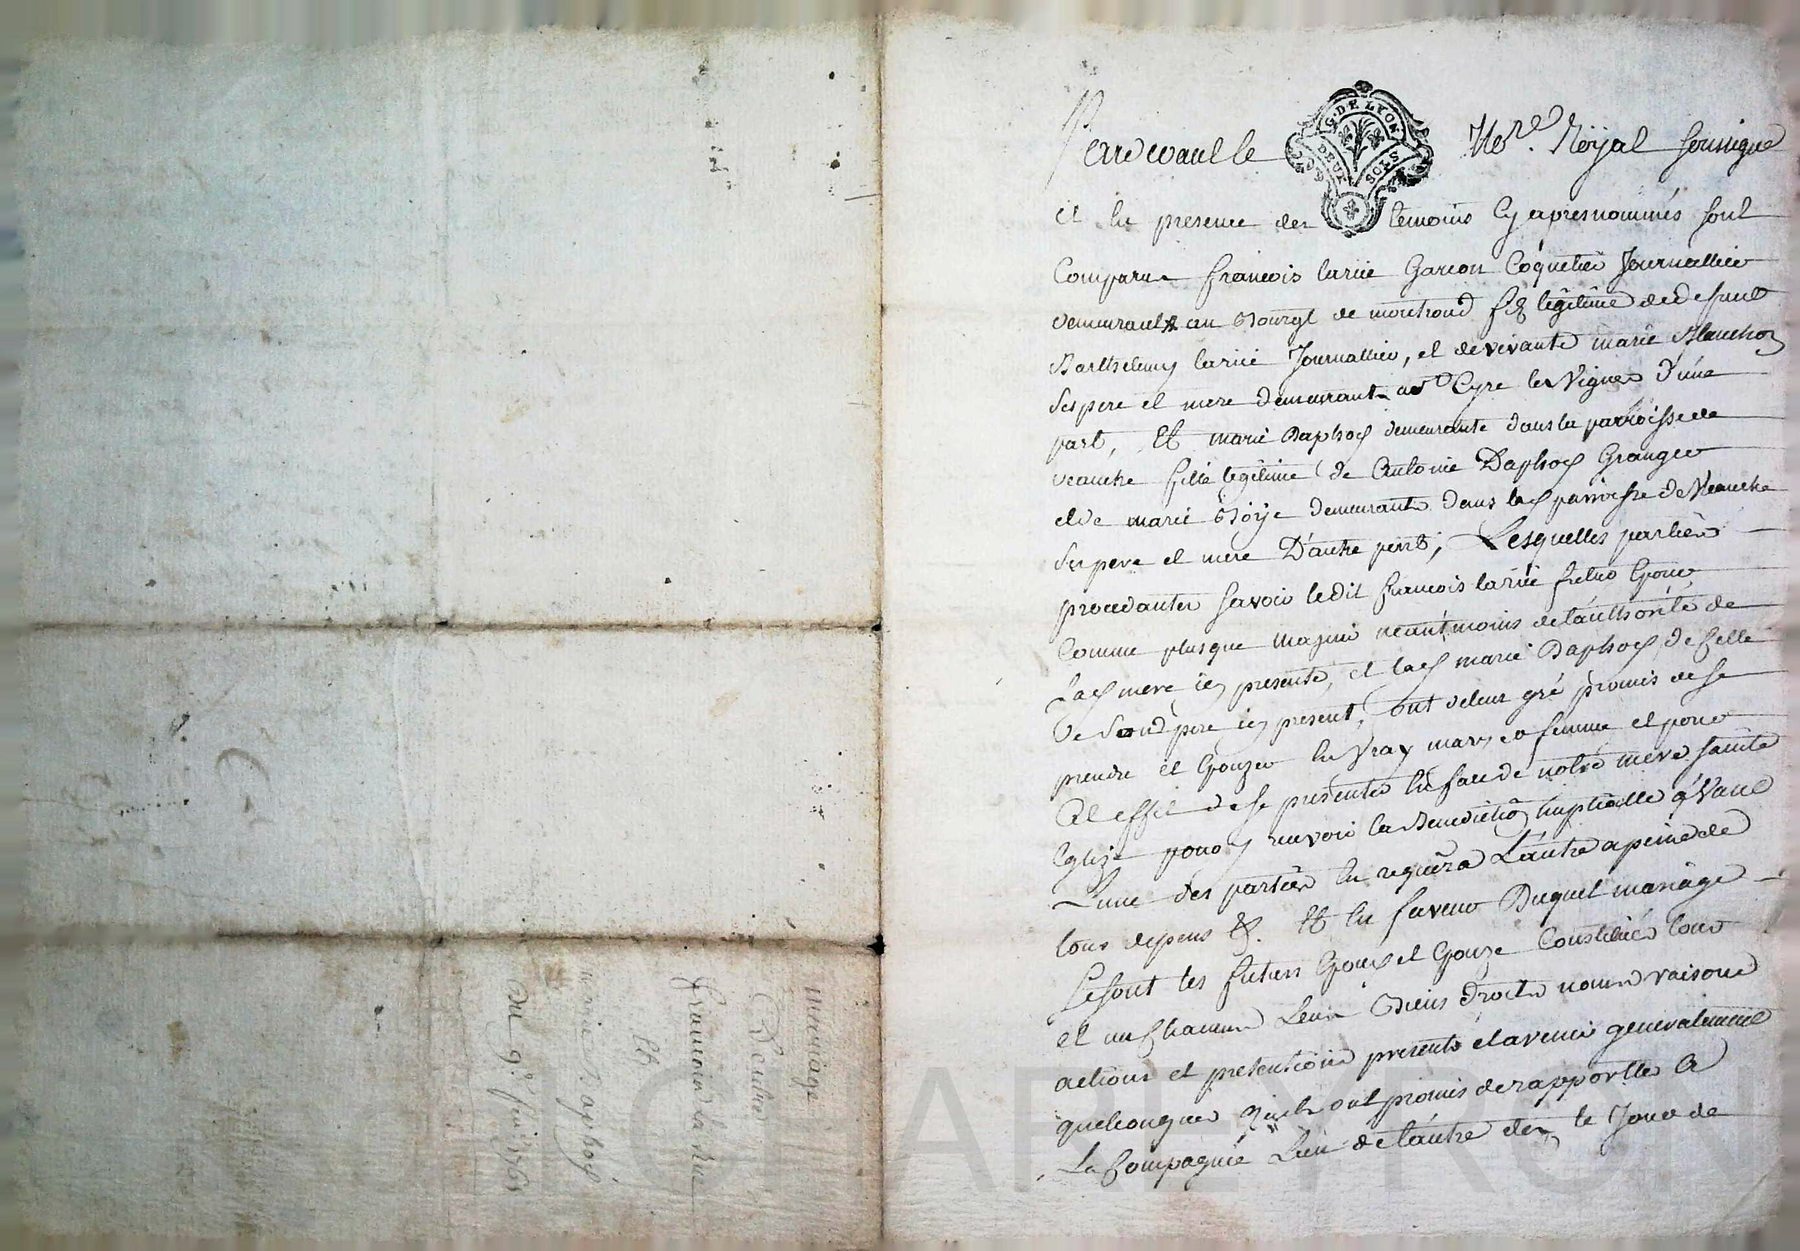 Pardevant le No.re Royal soussigné
G. DE LYON
DEUX SOLS
et en presence des temoins cy apres nommés sont
Comparus francois larüe Garcon Coquetier Journallier
demeurant au Bourgt de montrond fils legitime de defunt
Barthelemy larüe Journallier, et de vivante marie Blanchon
ses pere et mere demeurants a St Cyre les Vignes D'une
part, Et marie Daphos demeurante dans la parroisse de
veauche fille legitime de Antoine Daphos Granger
et de marie Boÿe demeurants dans lad parroisse de Veauche
ses pere et mere D'autre part; Lesquelles parties
procedantes savoir ledit francois larüe futur Epoux
Comme plus que majeur néantmoins de l'aúthorité de
Lad mere icy presente, et lad marie Daphos de celle
de sond pere icy present, ont de leur gré promis de se
prendre et Epouzer en vray mary et femme et pour
Cet effet de se presenter en face de notre mere sainte
Eglize pour y recevoir la Benediction nuptialle q'd l'une
L'une des parties en requera L'autre a peine de
tous depens &. Et en faveur Duquel mariage
Se sont les futurs Epoux et Epouze Constitués tous
et un Chacun Leurs Biens droits noms raisons
actions et pretentions presents et a venir generalement
quelconques qu'ils ont promis de rapportter a
La Compagnie L'un de l'autre des le Jour de
mariage
D'entre
francois la rüe
Et
marie Daphos
Du 9e juin 1768
CHAREYRON